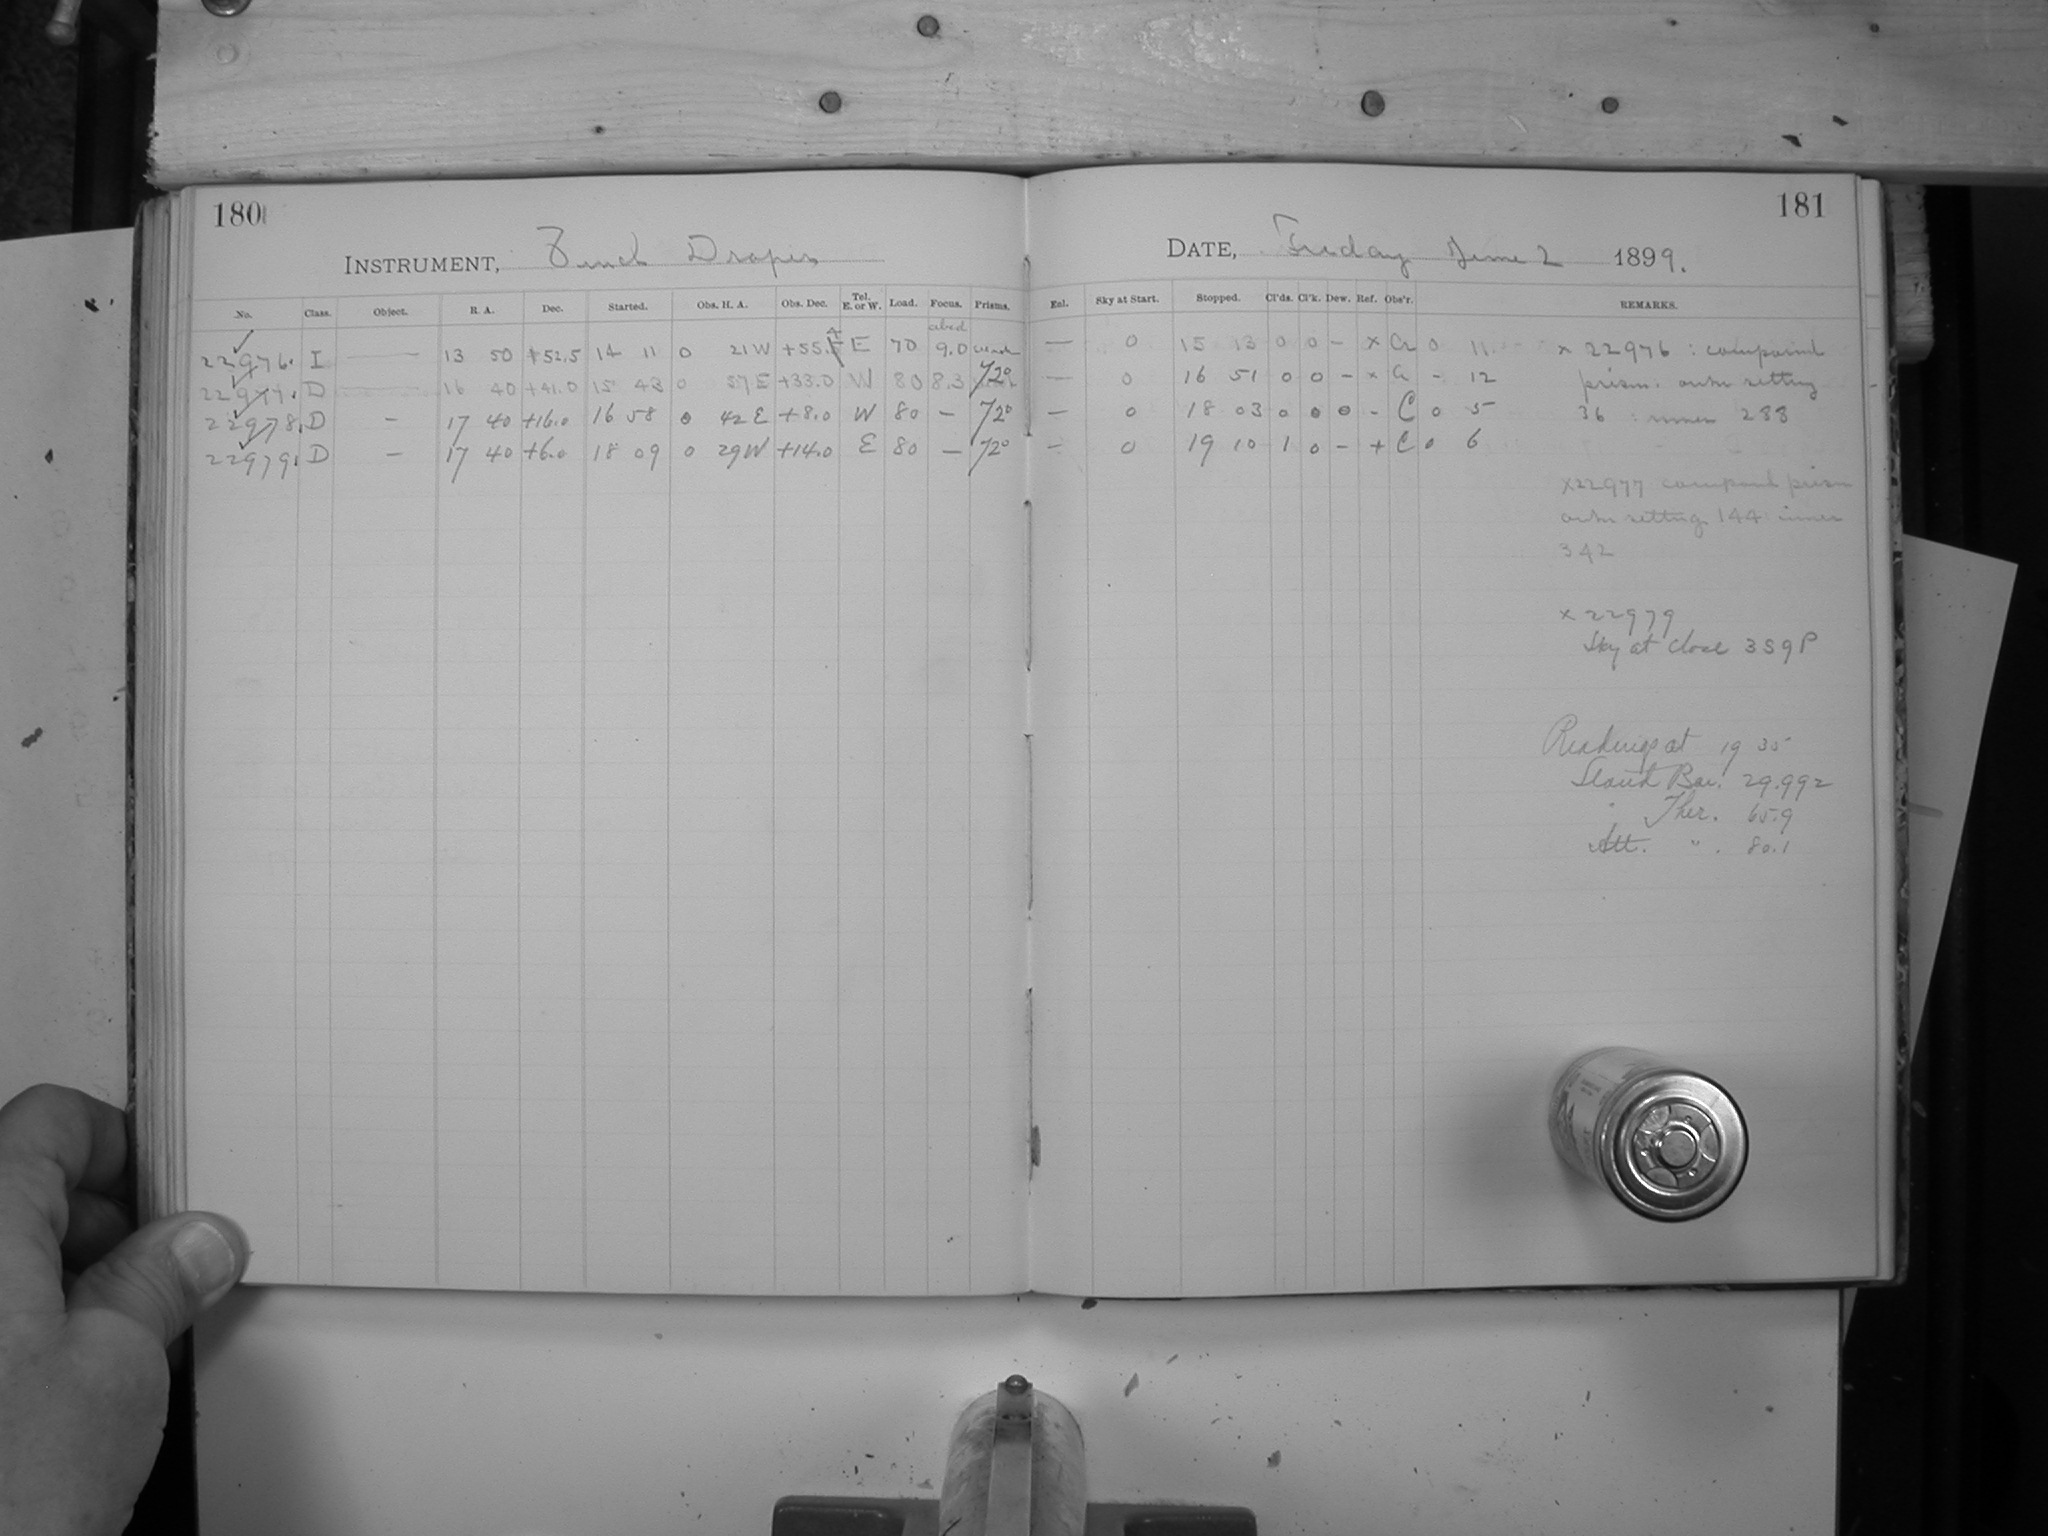 180
181
INSTRUMENT, 8 inch Draper
DATE, Friday June 2 1899.
No. Class. Object. R. A. Dec. Started. Obs. H. A. Obs. Dec. Tel. E. or W. Load. Focus. Prisms. Enl. Sky at Start. Stopped. Cl'ds. Cl'k. Dew. Ref. Obs'r. REMARKS.
22976. I — 13 50 +52.5 14 11 0 21 W +55. E 70 9.0 — 0 15 13 0 0 - x 0 11
22977. D — 16 40 +41.0 15 43 0 57 E +33.0 W 80 8.3 — 0 16 51 0 0 - x - 12
22978. D — 17 40 +16.0 16 58 0 42 E +8.0 W 80 — — 0 18 03 0 0 0 - C 0 5
22979. D — 17 40 +6.0 18 09 0 29 W +14.0 E 80 — — 0 19 10 1 0 - + C 0 6
x 22976 : compound
prism: outer setting
36 : inner 288
x 22977 compound prism
outer setting 144 inner
342
x 22979
Sky at close 3S9P
Readings at 19 35
Stand Bar. 29.992
" Ther. 65.9
Att. " . 80.1